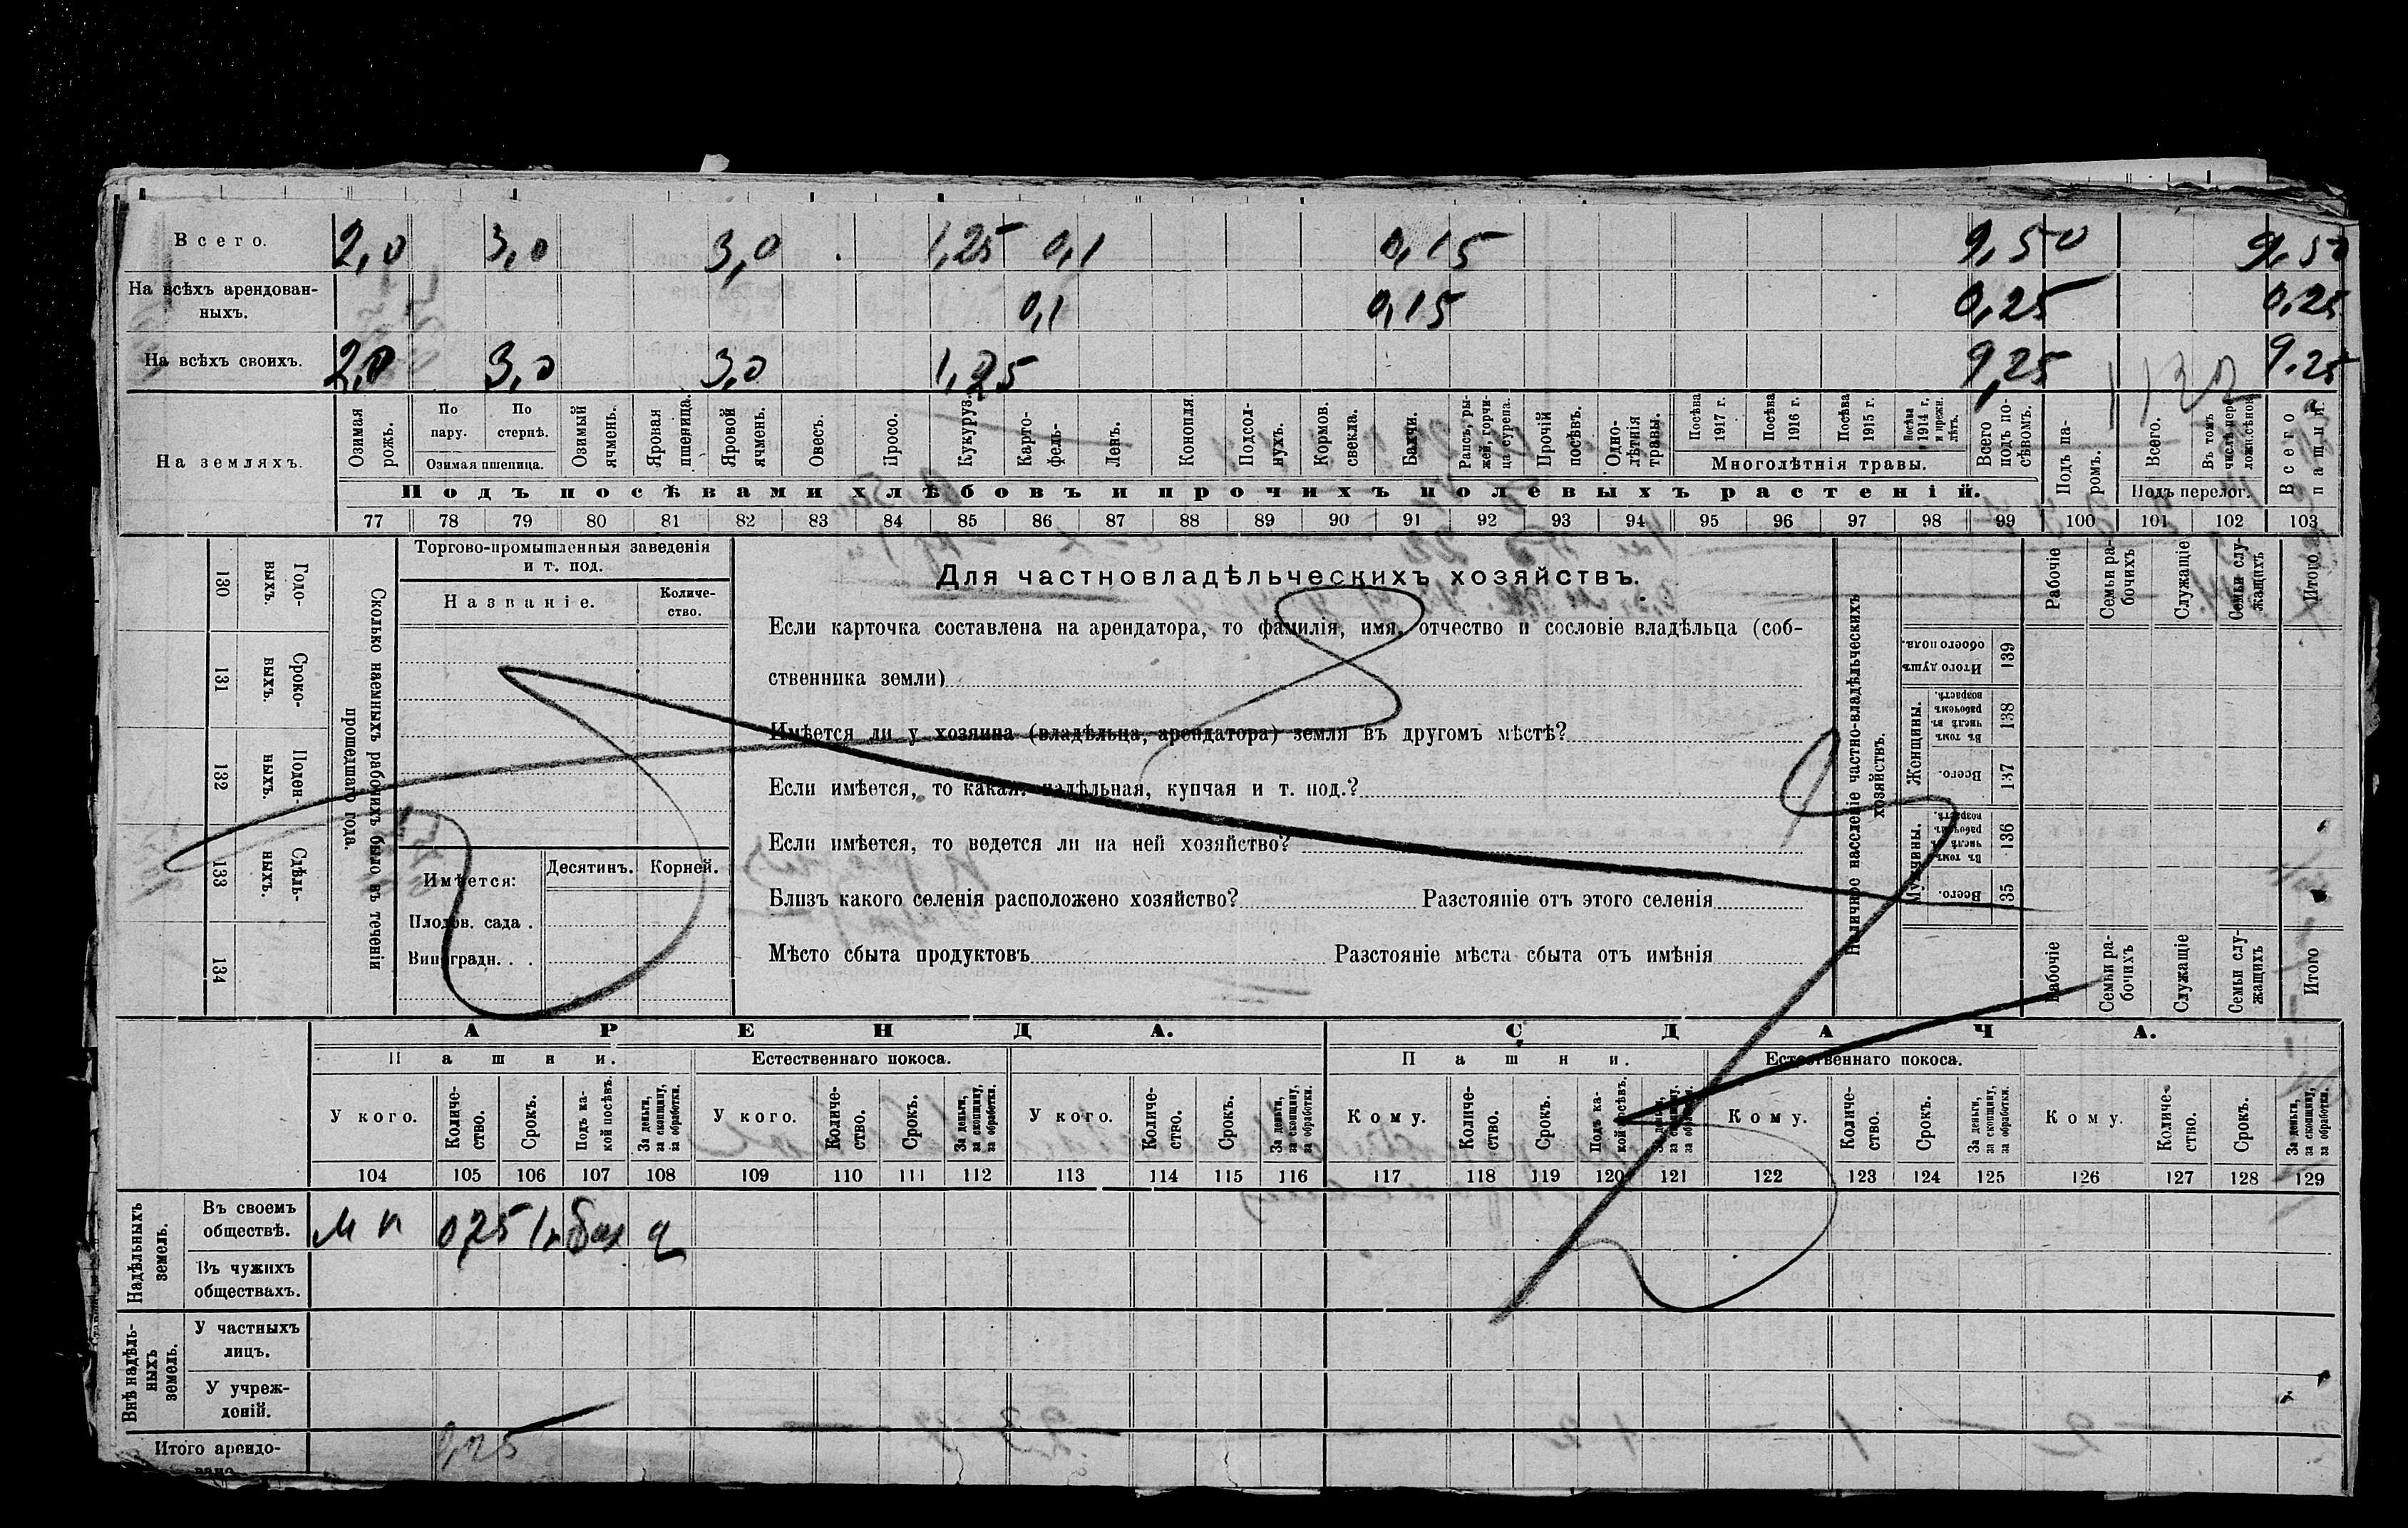 Всего. 2,0 3,0 3,0 1,25 0,1 0,15 9,50 9,50
На всѣхъ арендован-
ныхъ. 0,1 0,15 0,25 0,25
На всѣхъ своихъ. 2,0 3,0 3,0 1,25 9,25 9,25
На земляхъ.
Озимая рожь.
По пару.
По стернѣ.
Озимая пшеница.
Озимый ячмень.
Яровая пшеница.
Яровой ячмень.
Овесъ.
Просо.
Кукуруз.
Карто-
фель-
Ленъ.
Конопля.
Подсол-
нухъ.
Кормов. свекла.
Бахчи.
Рапсъ, ры-
жей, горчи-
ца сурепа.
Прочій посѣвъ.
Одно-
лѣтнія травы.
Посѣва 1917 г.
Посѣва 1916 г.
Посѣва 1915 г.
Посѣва 1914 г. и прежн. лѣтъ.
Многолѣтнія травы.
Всего подъ по-
сѣвомъ.
Подъ посѣвами хлѣбовъ и прочихъ полевыхъ растеній.
Подъ па-
ромъ.
Всего.
Въ томъ числѣ пере-
ложн. сѣнок.
Подъ перелог.
Всего пашни.
77 78 79 80 81 82 83 84 85 86 87 88 89 90 91 92 93 94 95 96 97 98 99 100 101 102 103
130 Годо-
выхъ.
131 Сроко-
выхъ.
132 Поден-
ныхъ.
133 Сдѣль-
ныхъ.
134
Сколько наемныхъ рабочихъ было въ теченіи
прошедшаго года.
Торгово-промышленныя заведенія
и т. под.
Названіе.
Количе-
ство.
Имѣется: Десятинъ. Корней.
Плодов. сада .
Виноградн. . .
Для частновладѣльческихъ хозяйствъ.
Если карточка составлена на арендатора, то фамилія, имя, отчество и сословіе владѣльца (соб-
ственника земли)
Имѣется ли у хозяина (владѣльца, арендатора) земля въ другомъ мѣстѣ?
Если имѣется, то какая: надѣльная, купчая и т. под.?
Если имѣется, то ведется ли на ней хозяйство?
Близъ какого селенія расположено хозяйство? Разстояніе отъ этого селенія
Мѣсто сбыта продуктовъ Разстояніе мѣста сбыта отъ имѣнія
Наличное населеніе частно-владѣльческихъ
хозяйствъ.
Рабочіе
Семьи ра-
бочихъ
Служащіе
Семьи слу-
жащихъ
Итого
Итого душъ обоего пола. 139
Женщины.
Въ томъ числѣ въ рабочемъ возрастѣ. 138
Всего. 137
Мужчины.
Въ томъ числѣ въ рабочемъ возрастѣ. 136
Всего. 135
Рабочіе
Семьи ра-
бочихъ
Служащіе
Семьи слу-
жащихъ
Итого
АРЕНДА. СДАЧА.
Пашни. Естественнаго покоса. Пашни. Естественнаго покоса.
У кого.
Количе-
ство.
Срокъ.
Подъ ка-
кой посѣвъ.
За деньги, за скопщину, за обработки.
У кого.
Количе-
ство.
Срокъ.
За деньги, за скопщину, за обработки.
У кого.
Количе-
ство.
Срокъ.
За деньги, за скопщину, за обработки.
Кому.
Количе-
ство.
Срокъ.
Подъ ка-
кой посѣвъ.
За деньги, за скопщину, за обработки.
Кому.
Количе-
ство.
Срокъ.
За деньги, за скопщину, за обработки.
Кому.
Количе-
ство.
Срокъ.
За деньги, за скопщину, за обработки.
104 105 106 107 108 109 110 111 112 113 114 115 116 117 118 119 120 121 122 123 124 125 126 127 128 129
Надѣльныхъ земель.
Въ своемъ
обществѣ. 0,25 бах
Въ чужихъ
обществахъ.
Внѣ надѣль-
ныхъ земель.
У частныхъ
лицъ.
У учреж-
деній.
Итого арендо-
вано 0,25